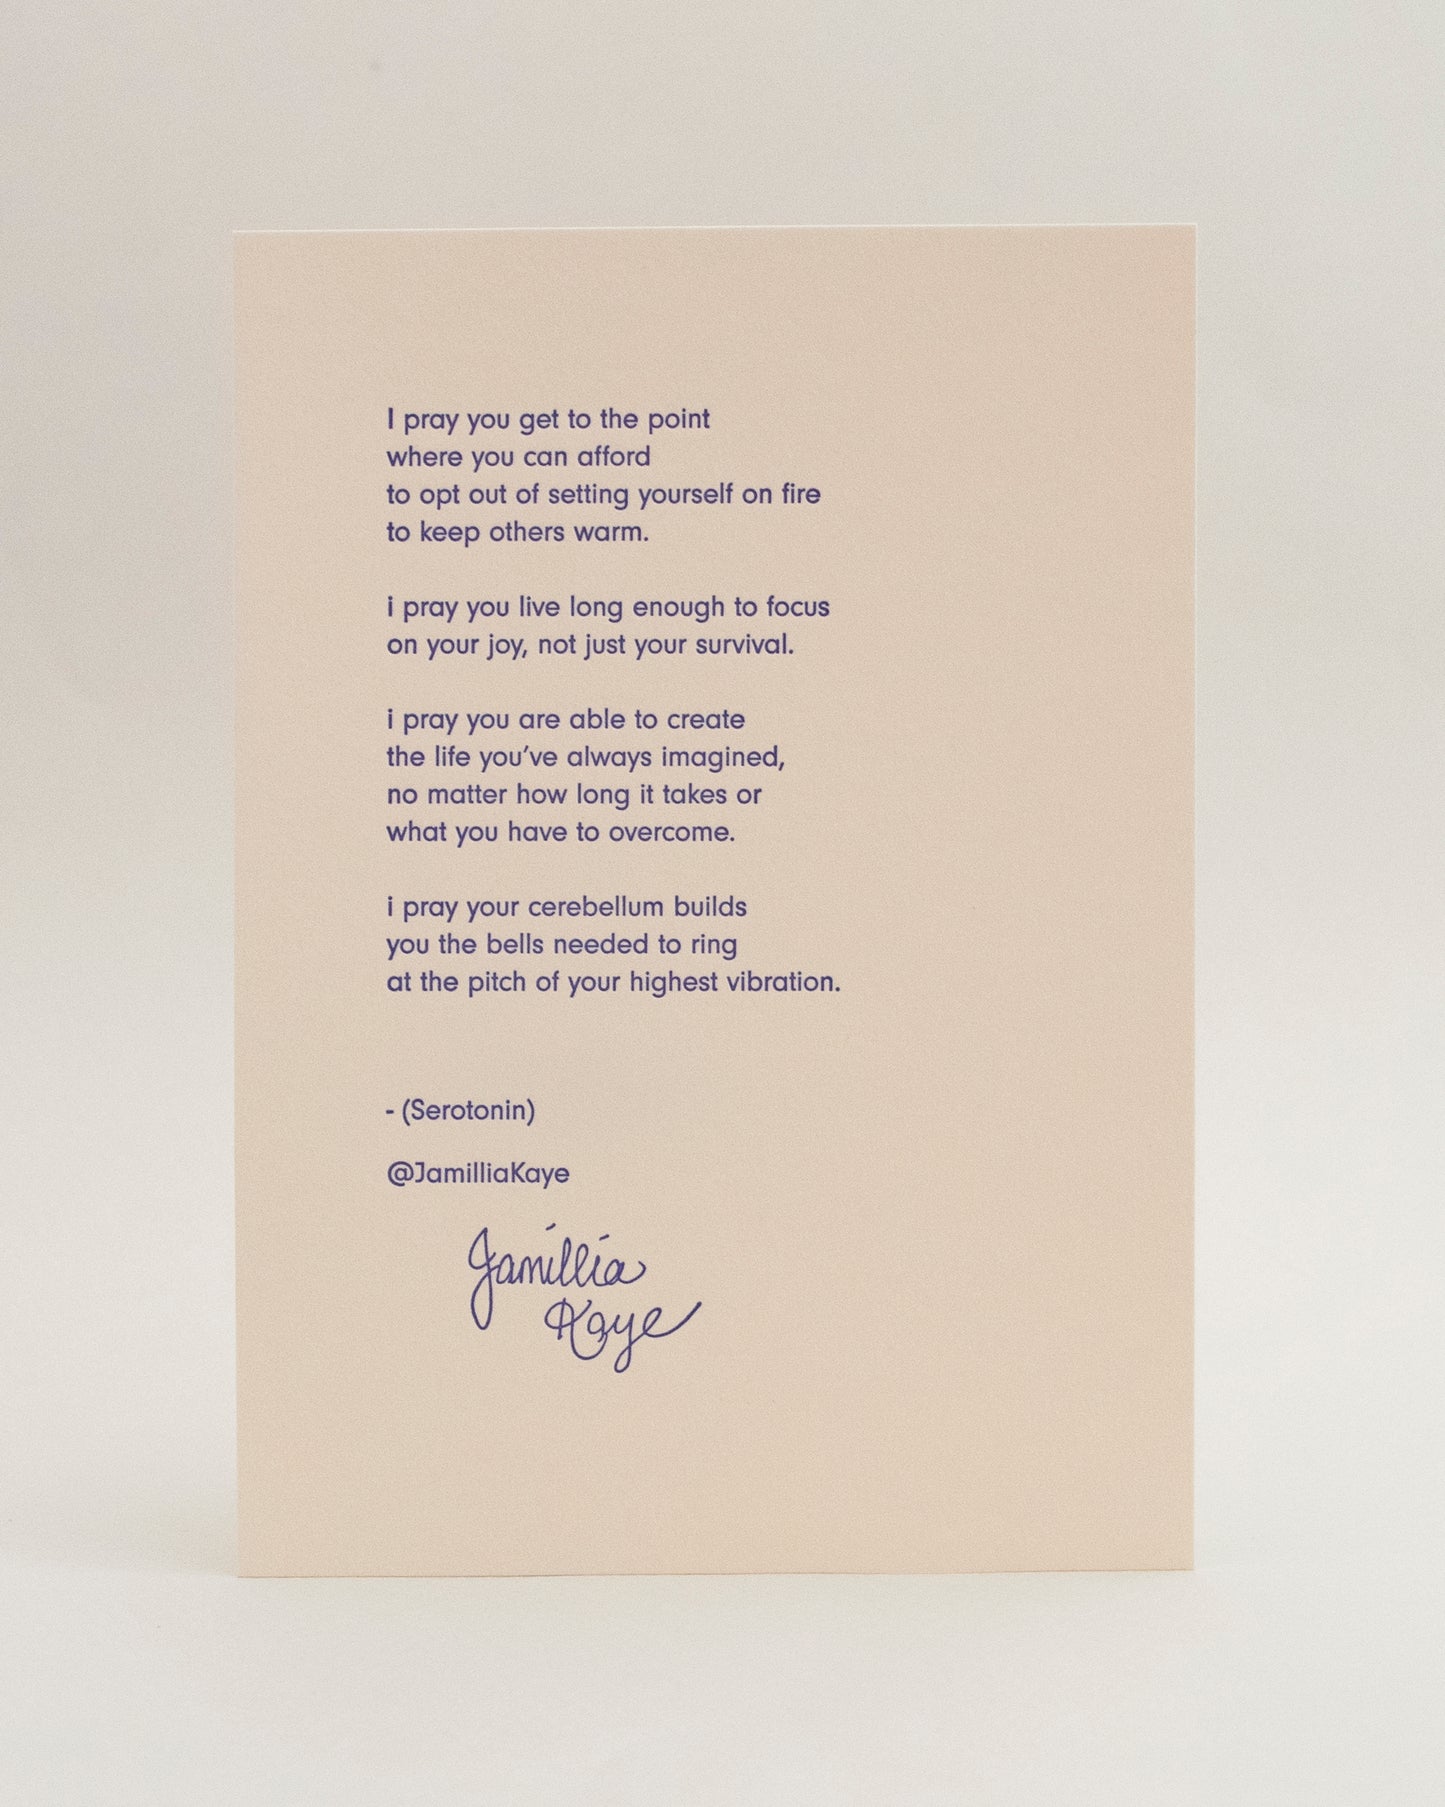 I pray you get to the point
where you can afford
to opt out of setting yourself on fire
to keep others warm.
i pray you live long enough to focus
on your joy, not just your survival.
i pray you are able to create
the life you’ve always imagined,
no matter how long it takes or
what you have to overcome.
i pray your cerebellum builds
you the bells needed to ring
at the pitch of your highest vibration.
- (Serotonin)
@JamilliaKaye
Jamillia
Kaye